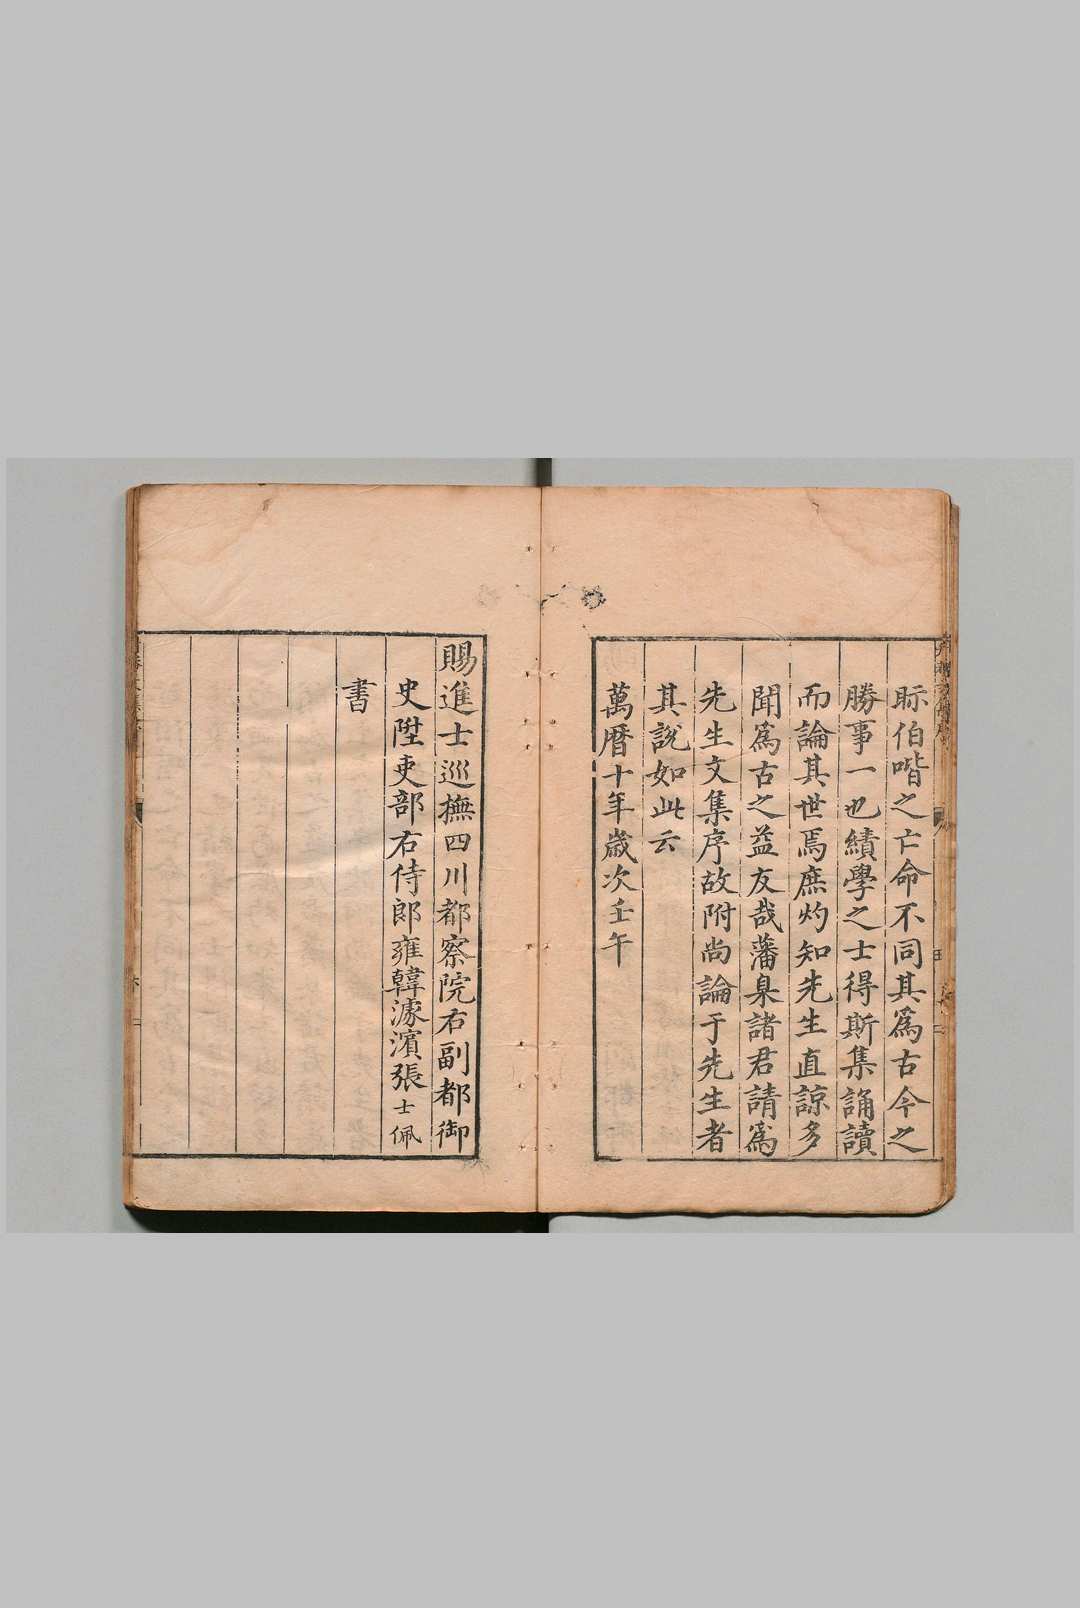 眎伯喈之亡命不同其爲古今之
勝事一也績學之士得斯集誦讀
而論其世焉庶灼知先生直諒多
聞爲古之益友哉藩臬諸君請爲
先生文集序故附尚論于先生者
其說如此云
萬曆十年歲次壬午
賜進士巡撫四川都察院右副都御
史陞吏部右侍郎雍韓濠濱張士佩
書